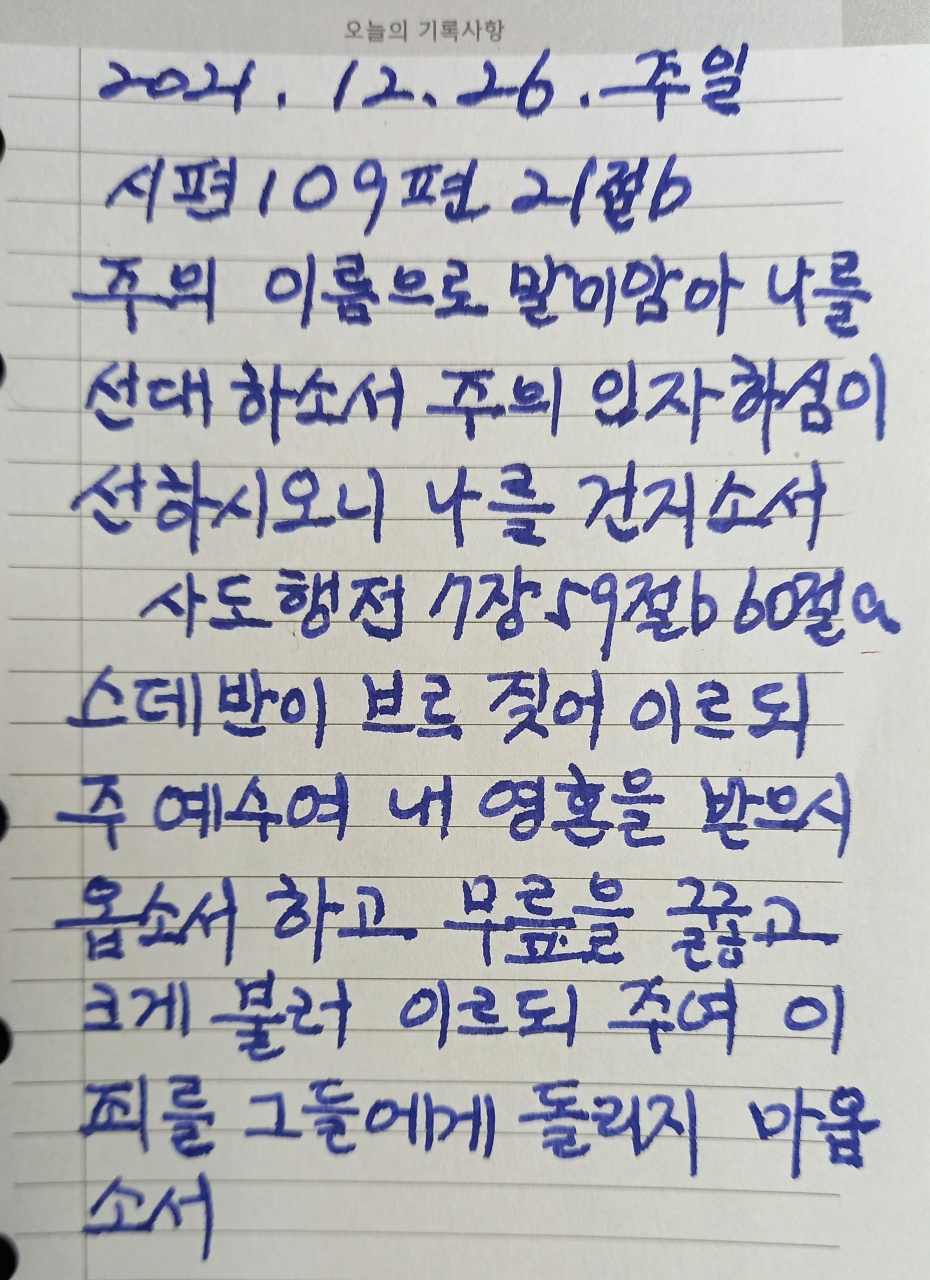 오늘의 기록사항
2021. 12. 26. 주일
시편109편 21절b
주의 이름으로 말미암아 나를
선대 하소서 주의 인자하심이
선하시오니 나를 건지소서
사도행전 7장59절b 60절a
스데반이 브르 짖어 이르되
주 예수여 내 영혼을 받으시
옵소서 하고 무릎을 꿇고
크게 불러 이르되 주여 이
죄를 그들에게 돌리지 마옵
소서